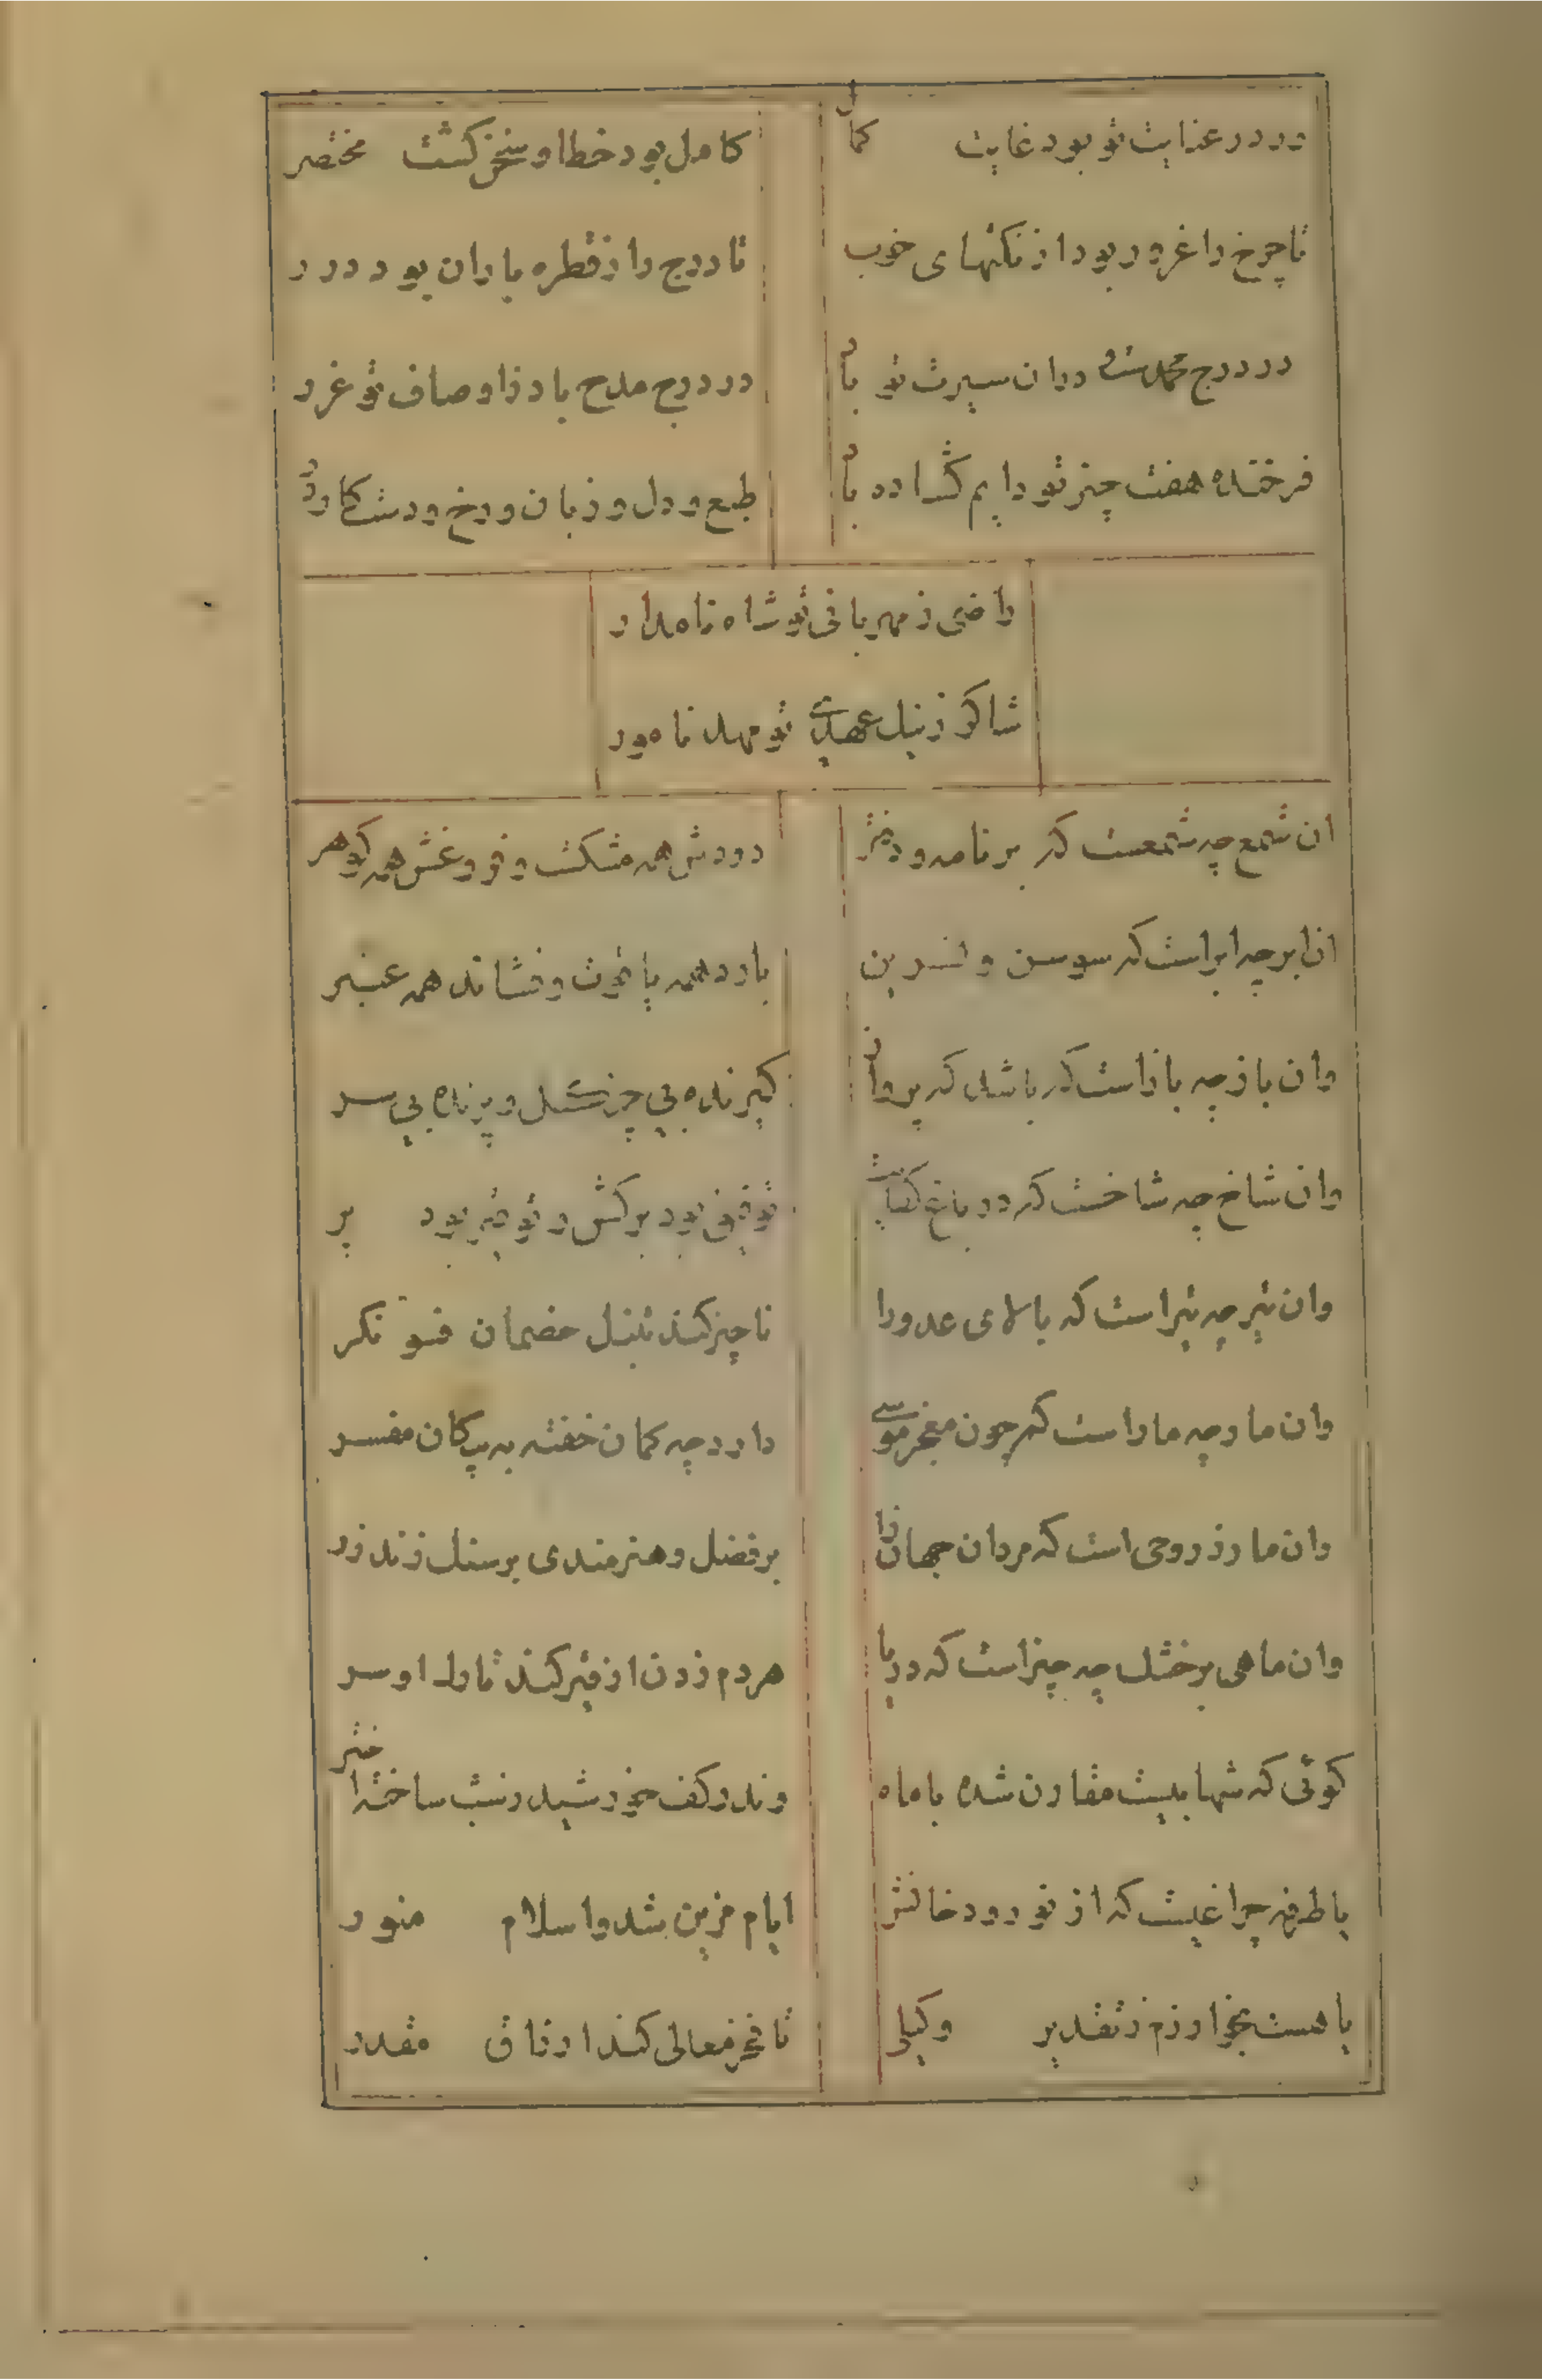 ور در عنایت تو بود غایت کمال
کامل بود خطا و سخن کشت مختصر
تا چرخ را غرور بود از نکتهای خوب
تا درج را ز قطره باران بود درر
در درج محمدت درران سیرت تو باد
در درج مدح باد ز اوصاف تو غرر
فرخنده هفت چیز تو دایم کشاده باد
طبع و دل و زبان و رخ و دست کار و در
راضی ز مهربانی تو شاه نامدار
شاکر ز نیل عهدی تو مهد نامور
ان شمع چه شمعست که بر نامه و دفتر
دودش همه مشکست و فروغش همه کوهر
ان ابر چه ابر است که سوسن و نسرین
بارد همه یاقوت و فشاند همه عنبر
وان باز چه باز است که باشد که پرواز
کیرنده بی چنکل و پرنده بی سر
وان شاخ چه شاخست که در باغ کفایت
توفیق بود برکش و توقیر بود بر
وان تیر چه تیر است که بالای عدو را
ناچیز کند تنبل خصمان فسونکر
وان مار چه مار است که چون معجز موسی
دارد چه کمان خفته به پیکان مفسر
وان مار ز روحی است که مردان جهان را
بر فضل و هنرمندی بر سنک زند زر
وان ماهی بر خشک چه چیز است که دریا
هر دم زدن از قیر کند تارک او سر
کوئی که شهابیست مقارن شده با ماه
وندر کف خورشید ز شب ساخته اختر
یا طرفه چراغیست که از نور و دخانش
ایام مزین شد و اسلام منور
یا هست بخوارزم ز تقدیر وکیلی
تا فخر معالی کند ارزاق مقدر